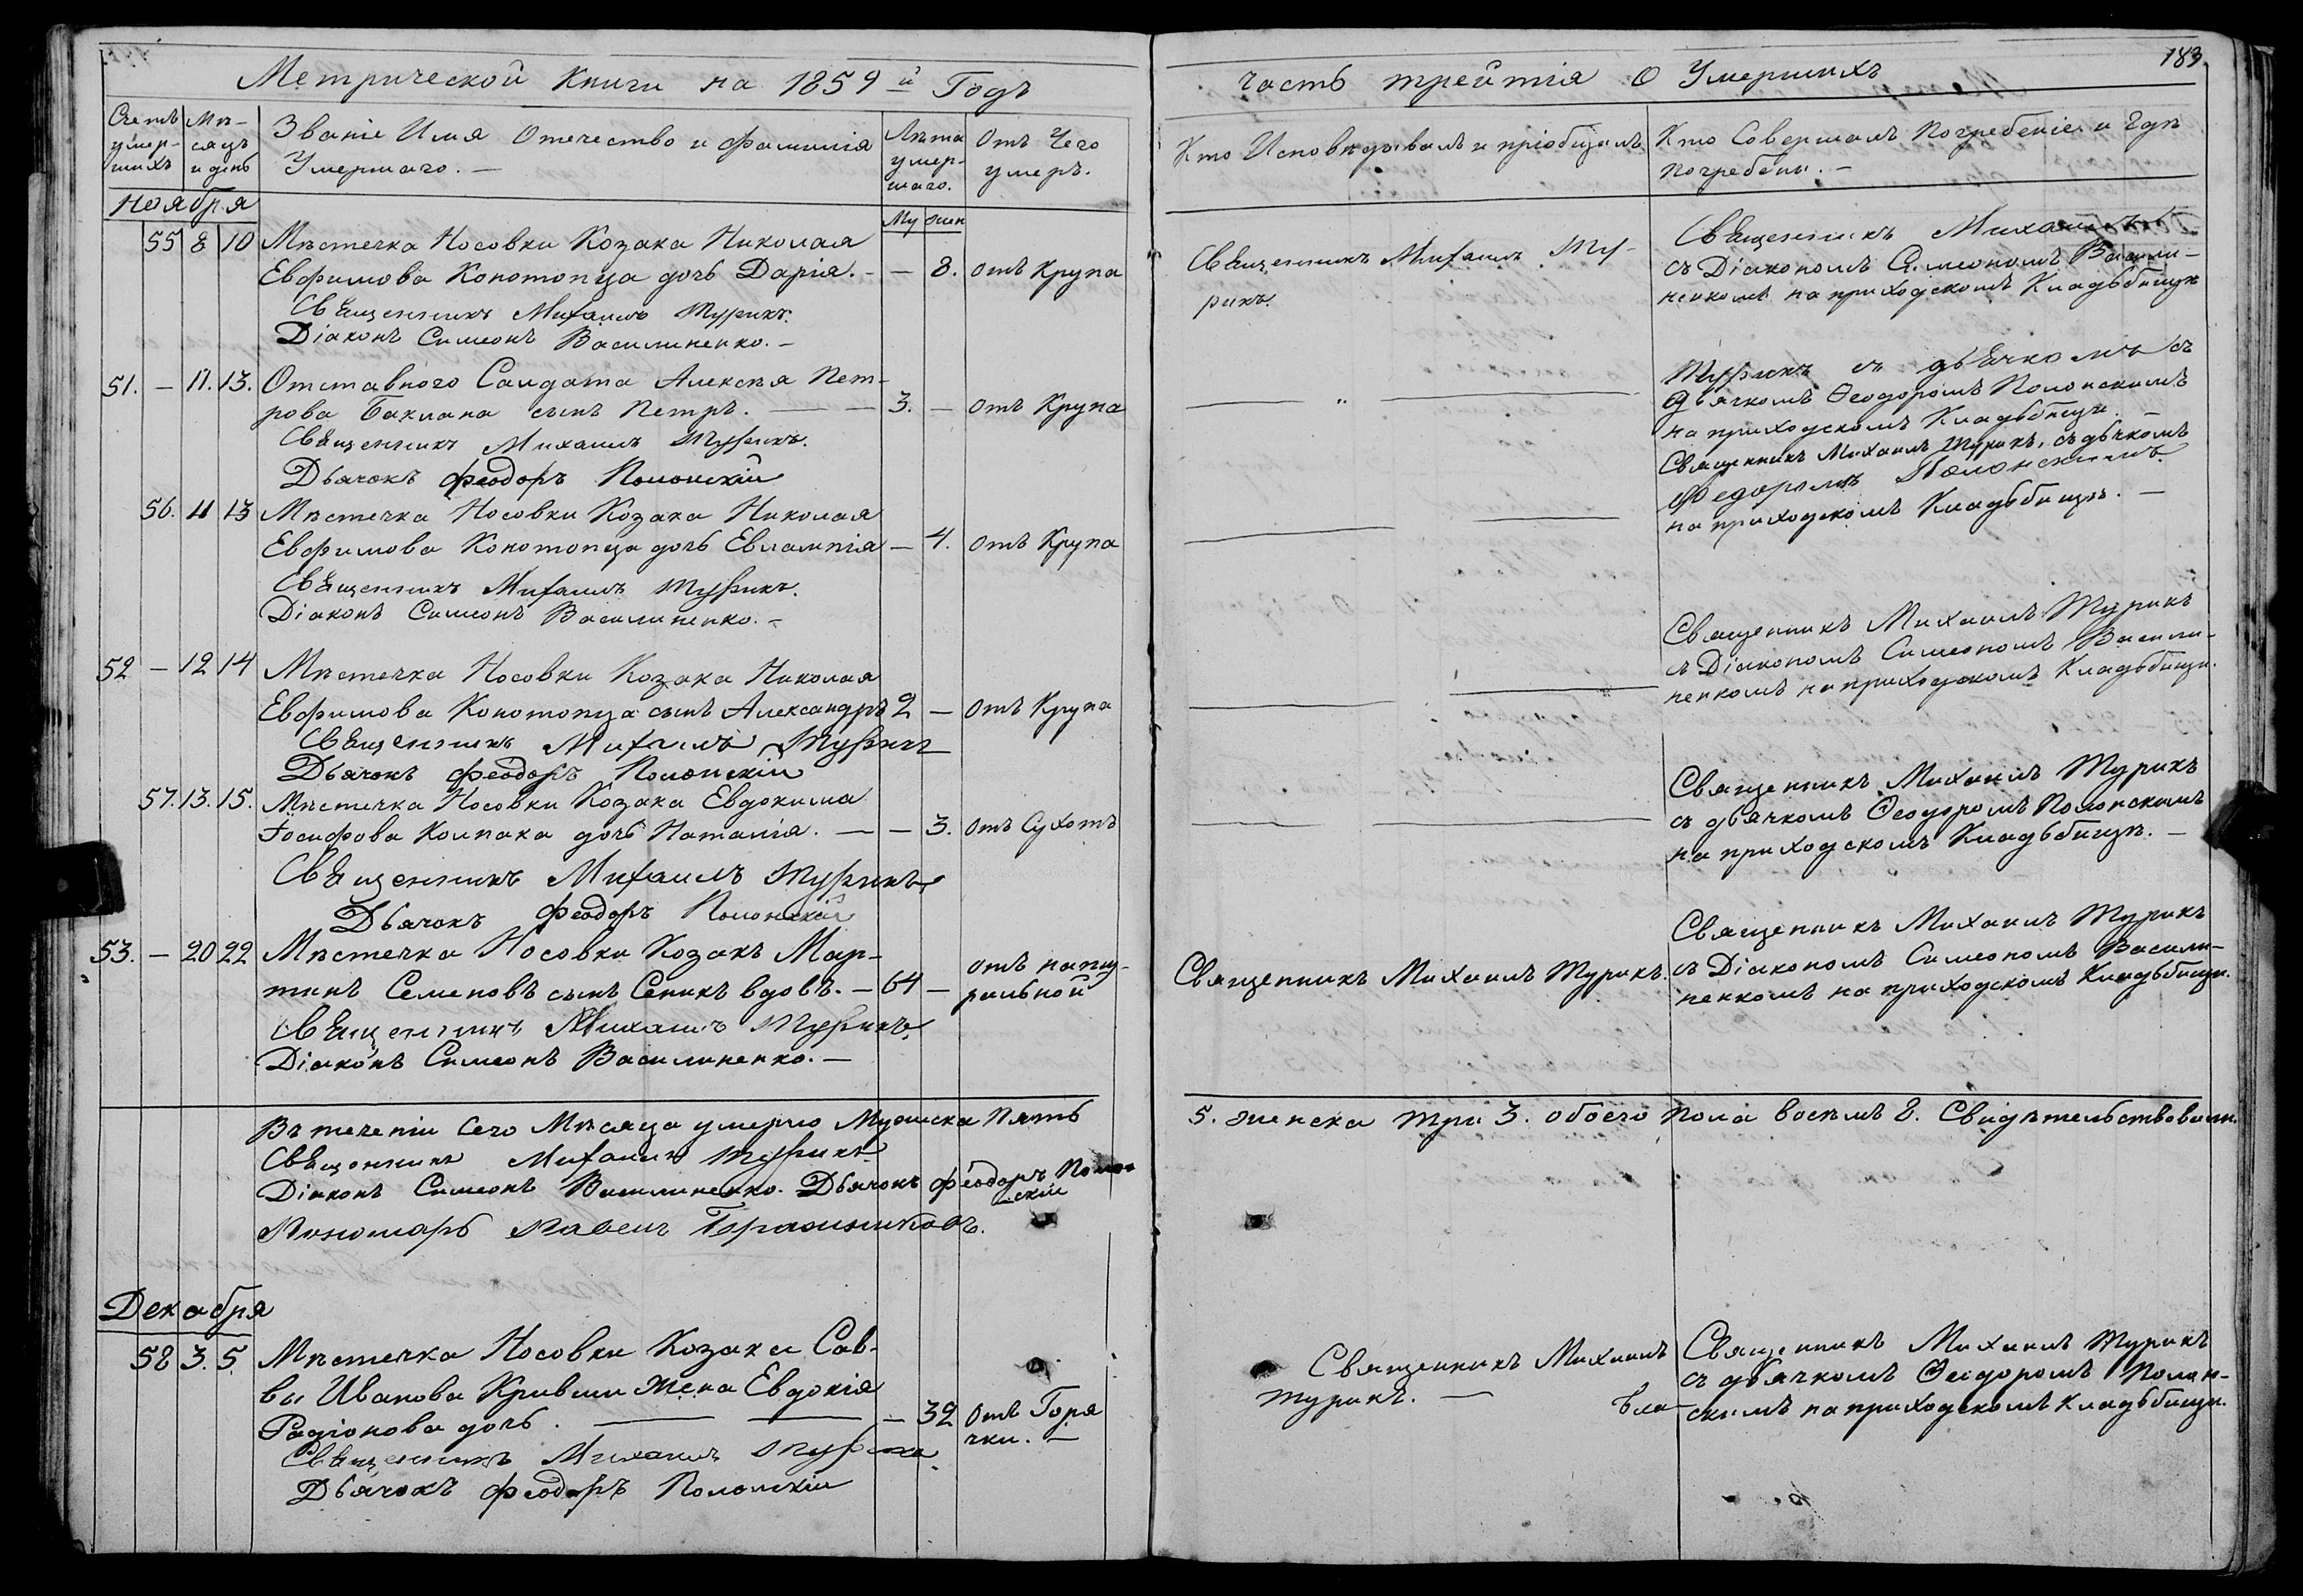 Метрической Книги на 1859й Годъ
Счетъ умер- шихъ
Мѣ- сяцъ и день
Званіе Имя Отечество и фамилія
Умершаго. —
Лѣта умер- шаго.
Отъ Чего умеръ.
Ноября
Му жен
55 8 10 Мѣстечка Носовки Козака Николая
Евфимова Конотопца дочь Дарія. — — 8. отъ Крупа
Священникъ Михаилъ Турикъ.
Діаконъ Симеонъ Василиненко. —
51. — 11. 13. Отставного Салдата Алексѣя Пет-
рова Баклана сынъ Петръ. — — 3. — отъ Крупа
Священникъ Михаилъ Турикъ.
Дьячокъ Феодоръ Полонскій
56. 11 13 Мѣстечка Носовки Козака Николая
Евфимова Конотопца дочь Евлампія — 4. отъ Крупа
Священникъ Михаилъ Турикъ.
Діаконъ Симеонъ Василиненко. —
52 — 12 14 Мѣстечка Носовки Козака Николая
Евфимова Конотопца сынъ Александръ 2 — отъ Крупа
Священникъ Михаилъ Турикъ
Дьячокъ Феодоръ Полонскій
57. 13. 15. Мѣстечка Носовки Козака Евдокима
Іосифова Колпака дочь Наталія. — — 3. отъ Сухотъ
Священникъ Михаилъ Турикъ
Дьячокъ Феодоръ Полонскій
53. — 20 22 Мѣстечка Носовки Козакъ Мар-
тинъ Семеновъ сынъ Сеникъ вдовъ. — 64 —
Священникъ Михаилъ Турикъ.
Діаконъ Симеонъ Василиненко. —
Въ теченіи Сего Мѣсяца умерло Мужеска Пять
Священникъ Михаилъ Турикъ
Діаконъ Симеонъ Василиненко. Дьячокъ Феодоръ Полон-
скій
Пономарь Павелъ
Декабря
58 3. 5. Мѣстечка Носовки Козака Сав-
вы Иванова Кривши жена Евдокія
Радіонова дочь. — — — 32 отъ Горя
чки. —
Священникъ Михаилъ Турикъ
Дьячокъ Феодоръ Полонскій
183.
часть трейтія О Умершихъ
Кто Исповѣдывалъ и пріобщалъ.
Кто Совершалъ Погребеніе и Гдѣ
погребены. —
Священникъ Михаилъ Ту-
рикъ.
Священникъ Михаилъ
съ Діакономъ Симеономъ Васили-
ненкомъ на приходскомъ Кладьбищѣ
Турикъ съ дьячкомъ съ
дьячкомъ Ѳеодоромъ Полонскимъ
на приходскомъ Кладьбищѣ. —
Священникъ Михаилъ Турикъ, съ дьячкомъ
Федоромъ Полонскимъ.
на приходскомъ Кладьбищѣ. —
Священникъ Михаилъ Турикъ
съ Діакономъ Симеономъ Васили-
ненкомъ на приходскомъ Кладьбищѣ.
Священникъ Михаилъ Турикъ
съ дьячкомъ Ѳеодоромъ Полонскимъ
на приходскомъ Кладьбищѣ. —
Священникъ Михаилъ Турикъ.
Священникъ Михаилъ Турикъ
съ Діакономъ Симеономъ Васили-
ненкомъ на приходскомъ Кладьбищѣ.
5. женска три 3. обоего пола восемъ 8. Свидѣтельствовали.
Священникъ Михаилъ
Турикъ. —
Священникъ Михаилъ Турикъ
съ дьячкомъ Ѳеодоромъ Полон-
скимъ на приходскомъ Кладьбищѣ.